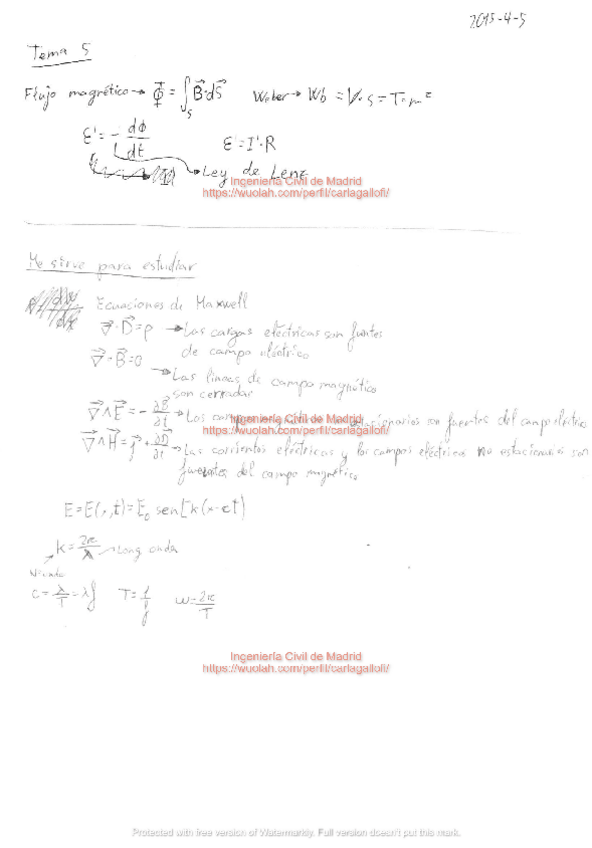 2015-4-5
Tema 5
Flujo magnético → Φ = ∫s B⃗·dS⃗   Weber → Wb = V·s = T·m²
Ɛ = - dΦ/dt   Ɛ = I·R
Ley de Lenz
Ingeniería Civil de Madrid
https://wuolah.com/perfil/carlagallofi/
Me sirve para estudiar
Ecuaciones de Maxwell
∇⃗·D⃗=ρ → Las cargas eléctricas son fuentes
de campo eléctrico
∇⃗·B⃗=0
→ Las líneas de campo magnético
son cerradas
∇⃗∧E⃗ = - ∂B⃗/∂t → Los campos estacionarios son fuentes del campo eléctrico
Ingeniería Civil de Madrid
https://wuolah.com/perfil/carlagallofi/
∇⃗∧H⃗ = j⃗ + ∂D⃗/∂t → Las corrientes eléctricas y los campos eléctricos no estacionarios son
fuentes del campo magnético
E = E(r,t) = E₀ sen[k(x-ct)
k = 2π/λ → Long onda
Nº onda
c = λ/T = λf   T = 1/f   ω = 2π/T
Ingeniería Civil de Madrid
https://wuolah.com/perfil/carlagallofi/
Protected with free version of Watermarkly. Full version doesn't put this mark.